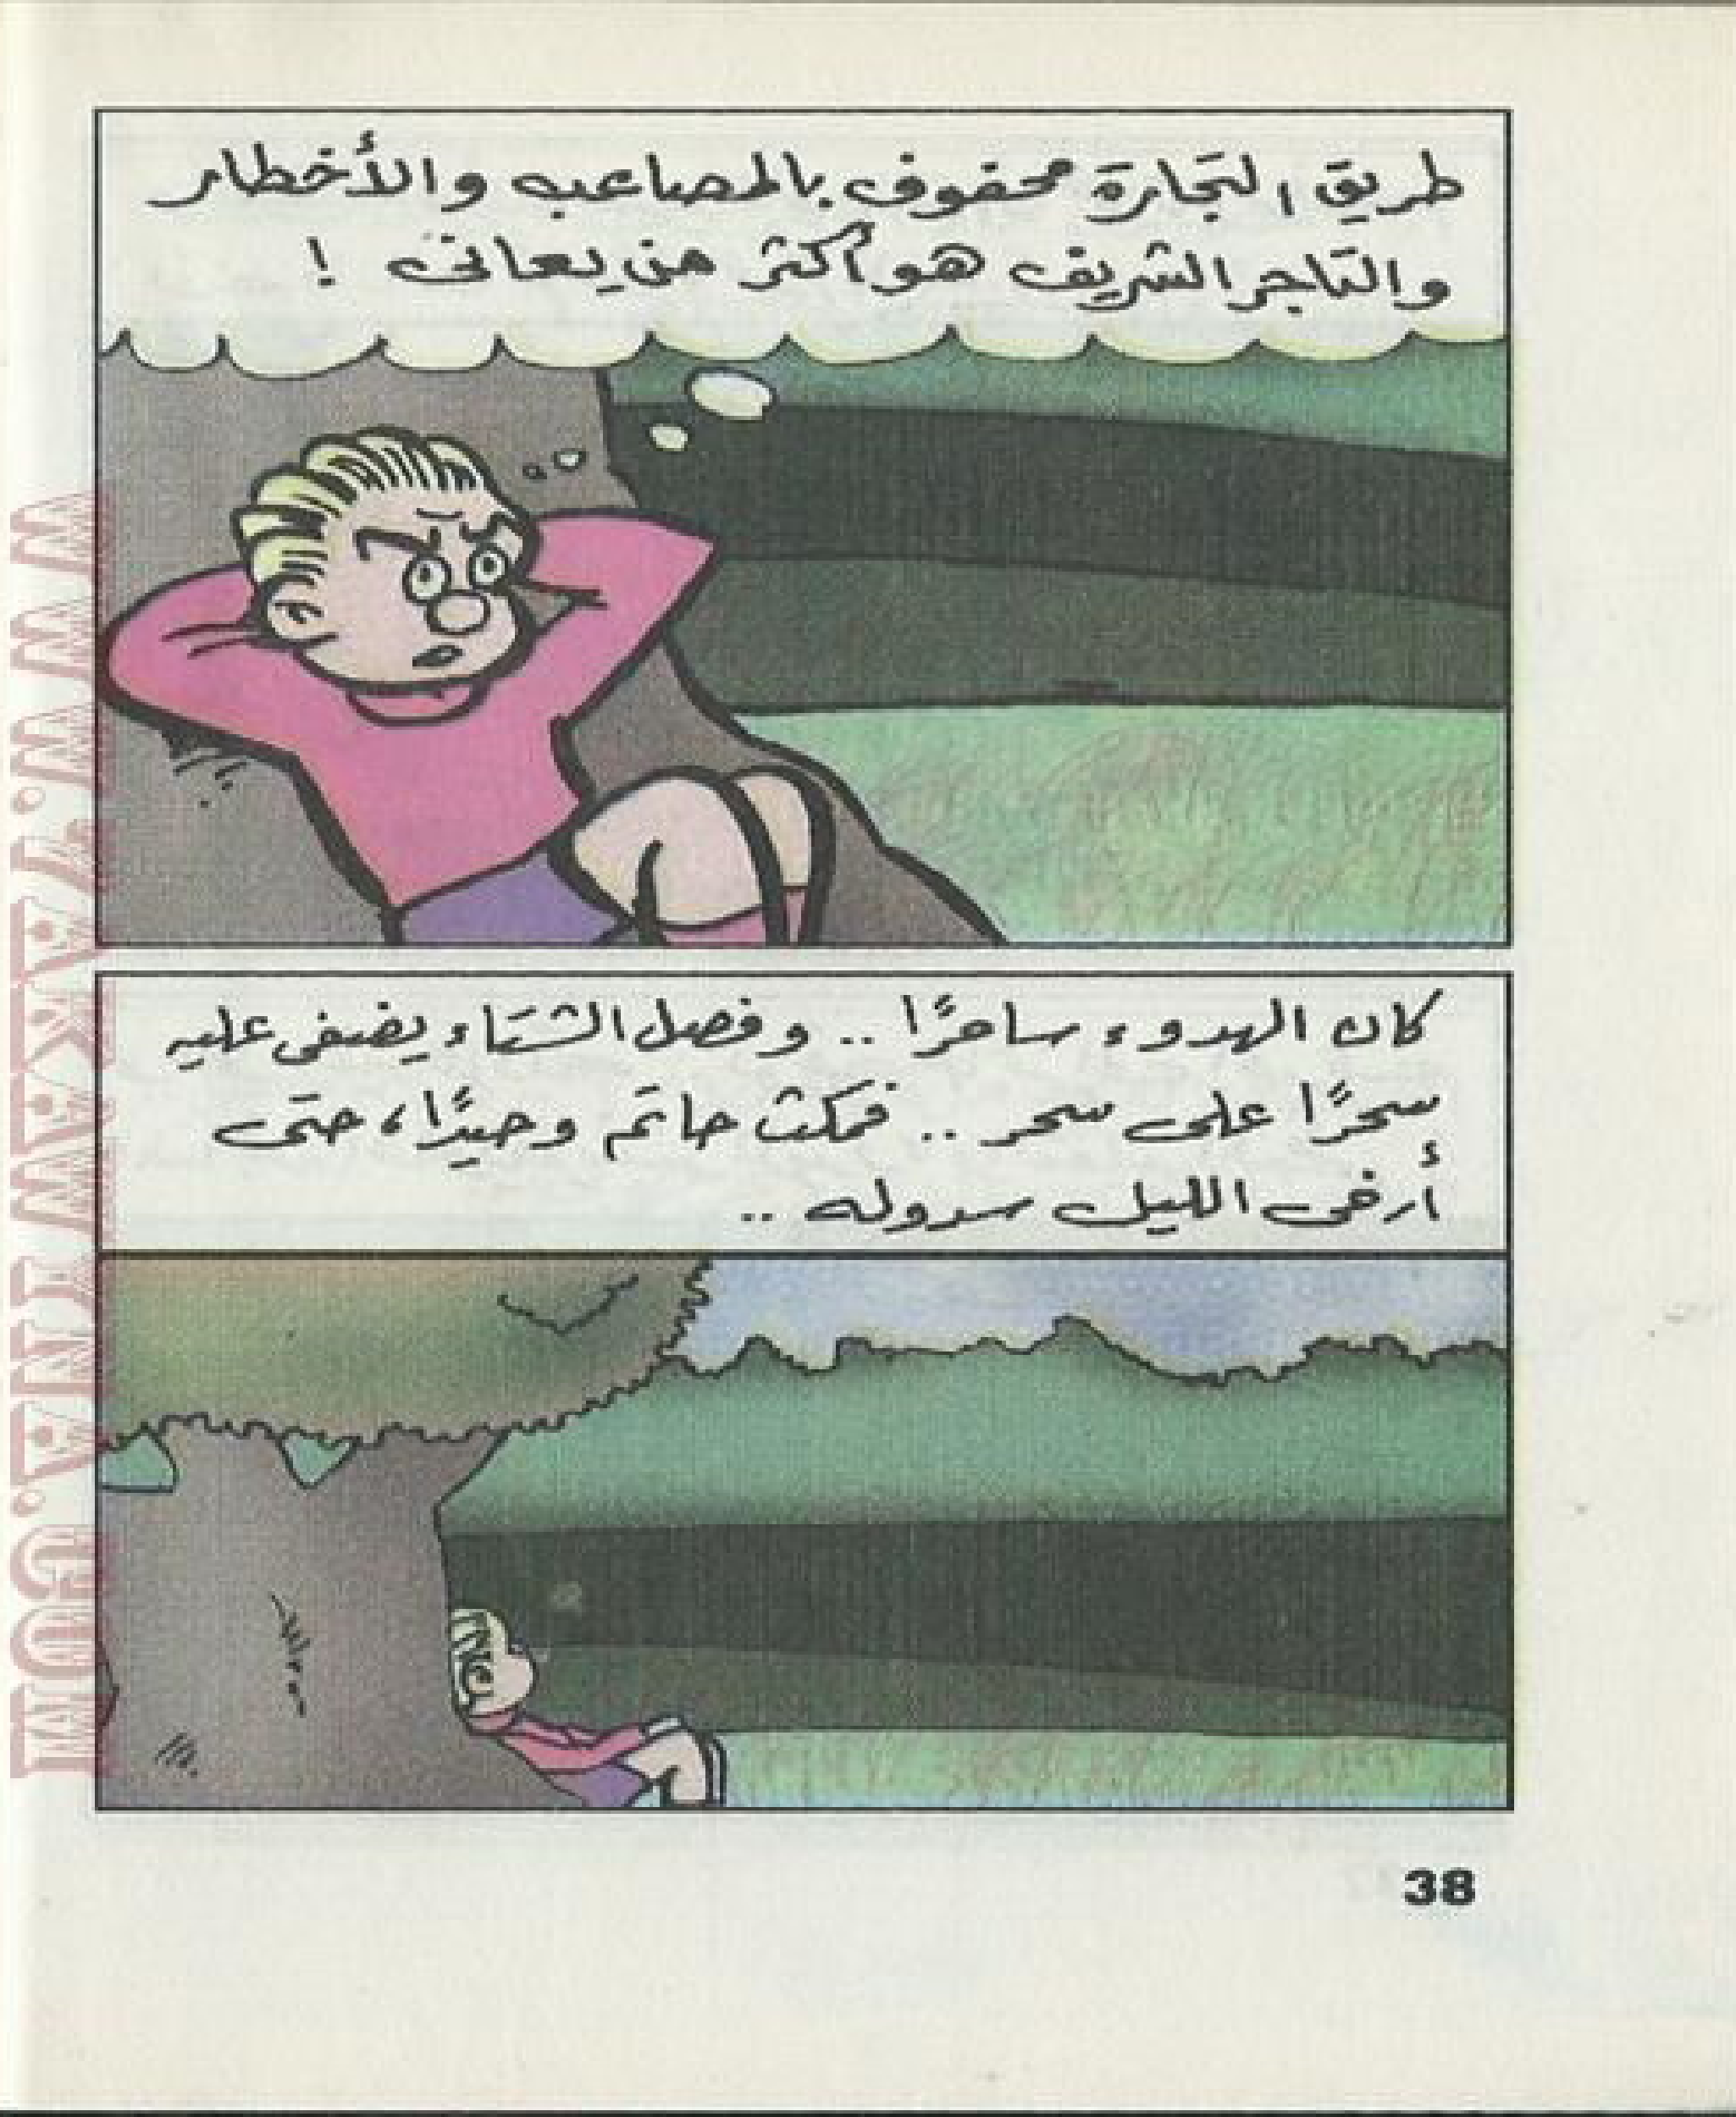 طريق التجارة محفوف بالمصاعب والأخطار
والتاجر الشريف هو أكثر من يعانى !
كان الهدوء ساحرًا .. وفصل الشتاء يضفى عليه
سحرًا على سحر .. فمكث حاتم وحيدًا، حتى
أرخى الليل سدوله ..
38
WWW.7AKAWTNA.COM